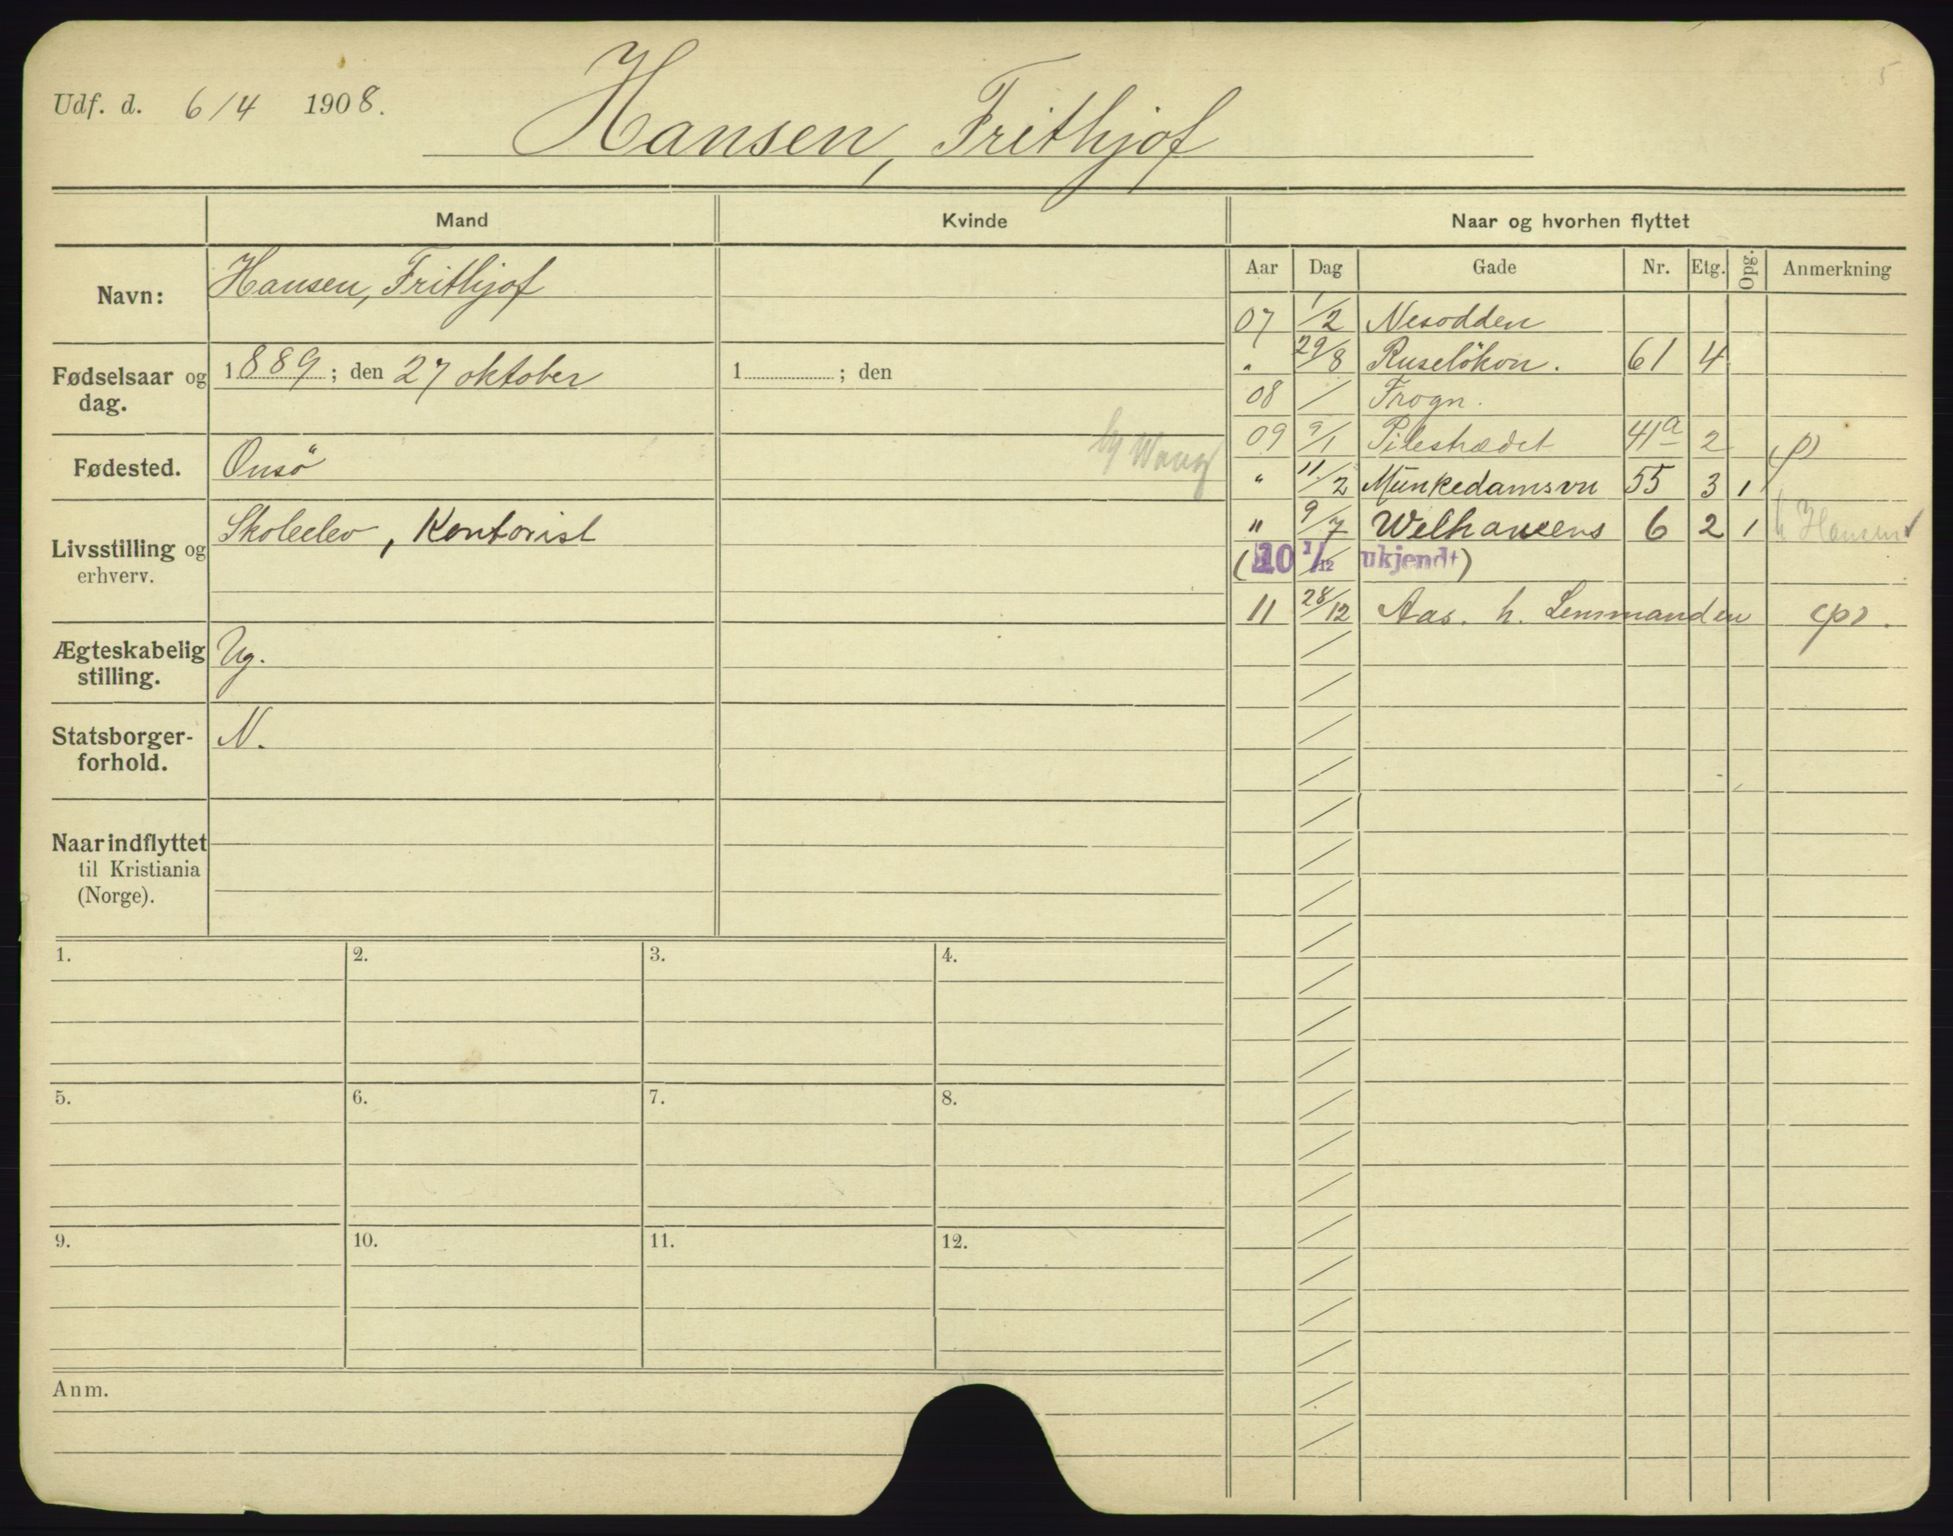 5
Udf. d. 6/4 1908.
Hansen, Frithjof
Mand Kvinde Naar og hvorhen flyttet
Aar Dag Gade Nr. Etg. Opg. Anmerkning
Navn: Hansen, Frithjof
Fødselsaar og dag. 1889; den 27 oktober 1 ; den
Fødested. Onsö
Livsstilling og erhverv. Skoleelev, Kontorist
Ægteskabelig stilling. Ug.
Statsborger-forhold. N.
Naar indflyttet til Kristiania (Norge).
07 1/2 Nesodden
" 29/8 Ruselökvn. 61 4
08 / Frogn.
09 9/1 Pilestrædet 41a 2
" 11/2 Munkedamsvn 55 3 1
" 9/7 Welhavens 6 2 1 h Hansen
(10 1/12 ukjendt)
11 28/12 Aas. h. Lensmanden
1. 2. 3. 4.
5. 6. 7. 8.
9. 10. 11. 12.
Anm.